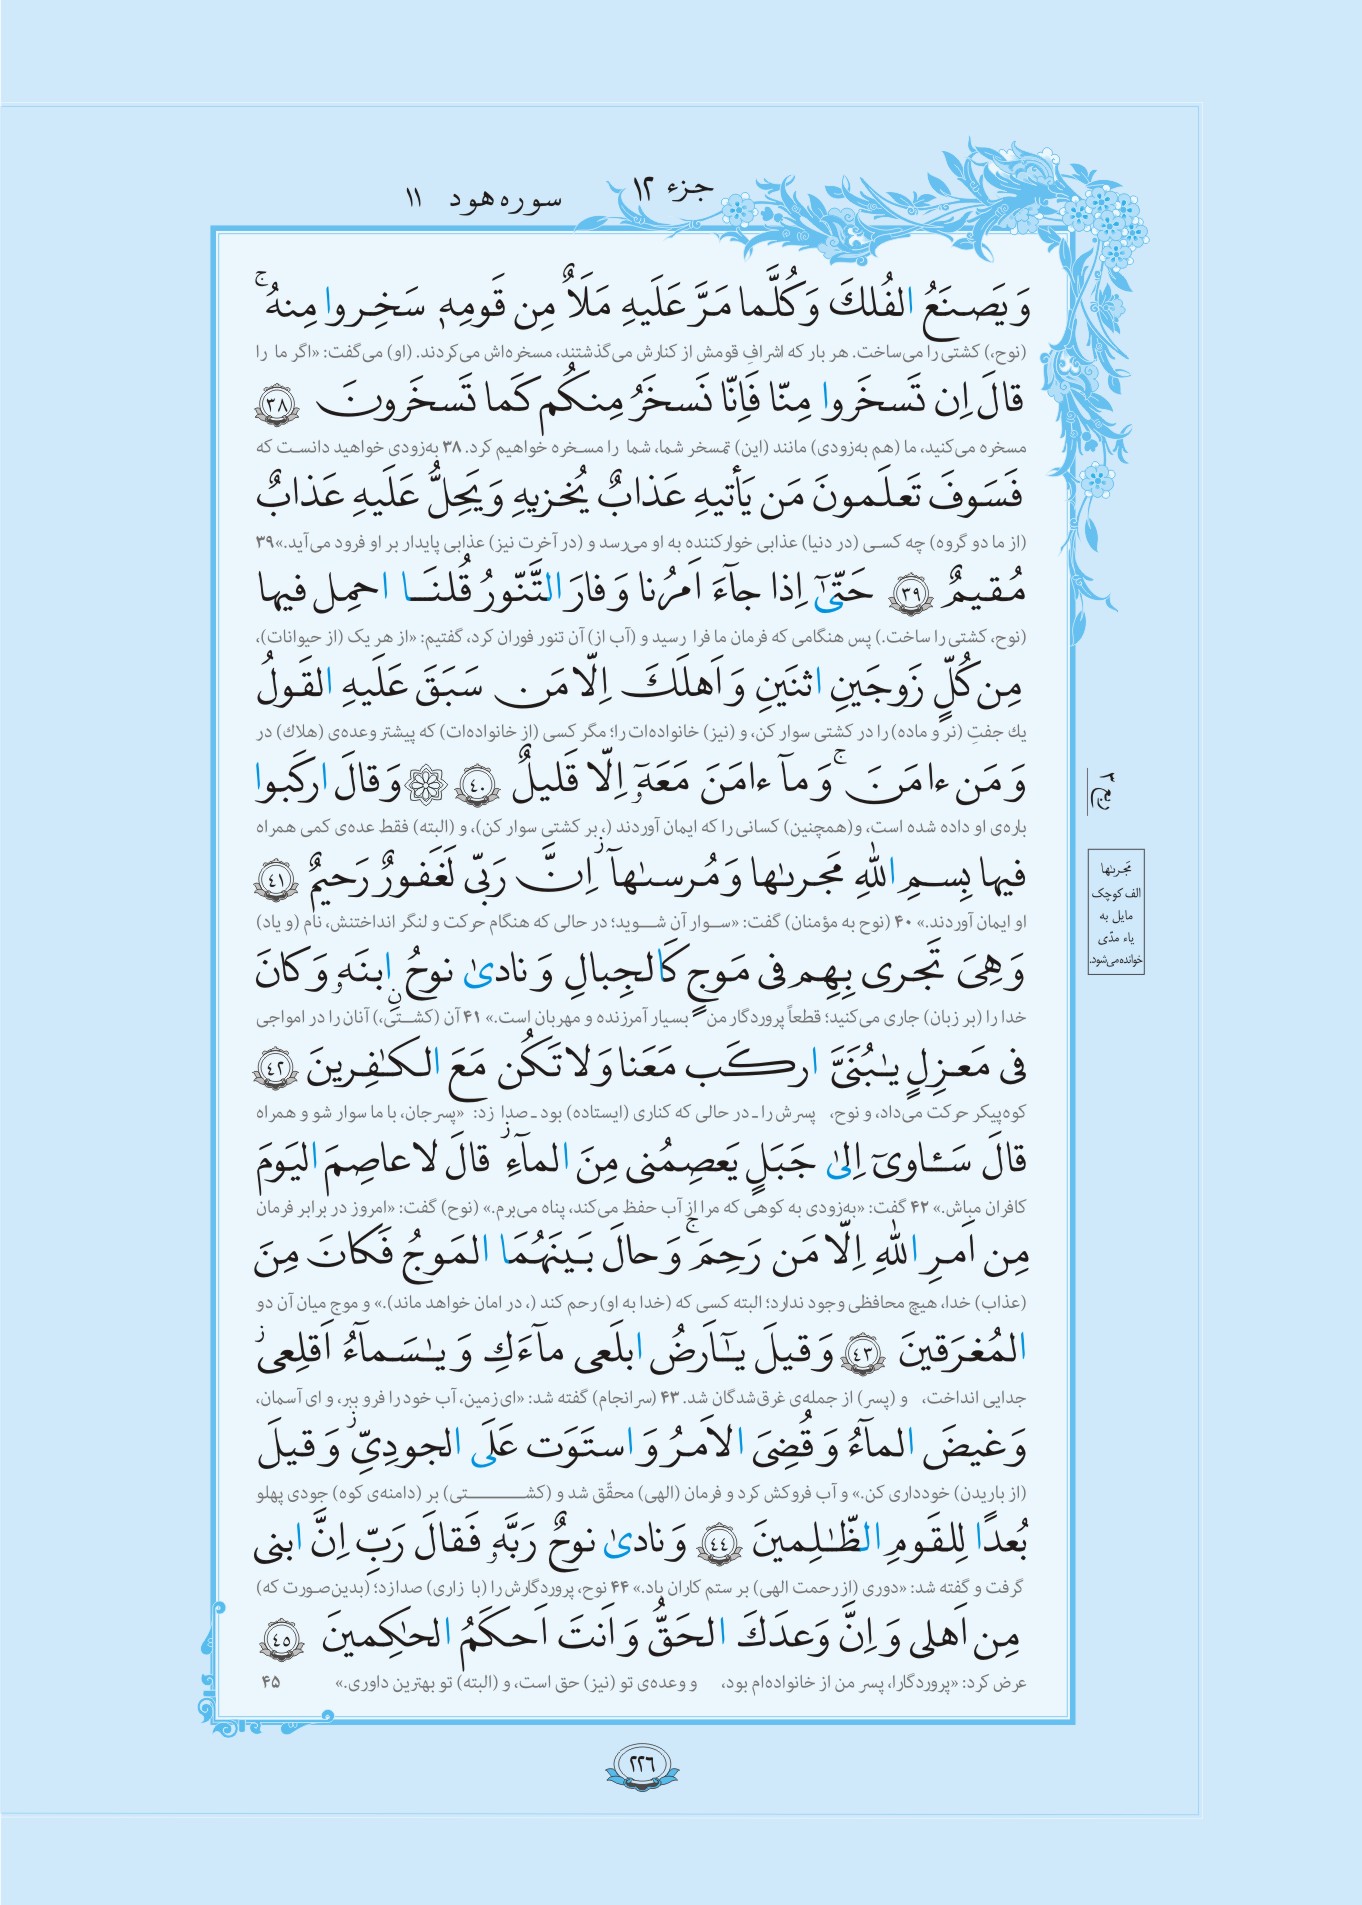 جزء ۱۲
سوره هود ۱۱
وَ يَصنَعُ الفُلكَ وَ كُلَّما مَرَّ عَلَيهِ مَلَأٌ مِن قَومِهٖ سَخِروا مِنهُ ۚ
(نوح،) کشتی را می‌ساخت. هر بار که اشرافِ قومش از کنارش می‌گذشتند، مسخره‌اش می‌کردند. (او) می‌گفت: «اگر ما را
قالَ اِن تَسخَروا مِنّا فَاِنّا نَسخَرُ مِنكُم كَما تَسخَرونَ ﴿٣٨﴾
مسخره می‌کنید، ما (هم به‌زودی) مانند (این) تمسخر شما، شما را مسخره خواهیم کرد. ۳۸ به‌زودی خواهید دانست که
فَسَوفَ تَعلَمونَ مَن يَأتيهِ عَذابٌ يُخزيهِ وَ يَحِلُّ عَلَيهِ عَذابٌ
(از ما دو گروه) چه کسی (در دنیا) عذابی خوارکننده به او می‌رسد و (در آخرت نیز) عذابی پایدار بر او فرود می‌آید.» ۳۹
مُقيمٌ ﴿٣٩﴾ حَتّىٰٓ اِذا جآءَ اَمرُنا وَ فارَ التَّنّورُ قُلنَا احمِل فيها
(نوح، کشتی را ساخت.) پس هنگامی که فرمان ما فرا رسید و (آب از) آن تنور فوران کرد، گفتیم: «از هر یک (از حیوانات)،
مِن كُلٍّ زَوجَينِ اثنَينِ وَ اَهلَكَ اِلّا مَن سَبَقَ عَلَيهِ القَولُ
یك جفتِ (نر و ماده) را در کشتی سوار کن، و (نیز) خانواده‌ات را؛ مگر کسی (از خانواده‌ات) که پیشتر وعده‌ی (هلاك) در
وَ مَن ءامَنَ ۚ وَ مآ ءامَنَ مَعَهٗٓ اِلّا قَليلٌ ﴿٤٠﴾ ۞ وَ قالَ اركَبوا
باره‌ی او داده شده است، و(همچنین) کسانی را که ایمان آوردند (، بر کشتی سوار کن)، و (البته) فقط عده‌ی کمی همراه
فيها بِسمِ اللّٰهِ مَجرىٰها وَ مُرسىٰهآ ۚز اِنَّ رَبّى لَغَفورٌ رَحيمٌ ﴿٤١﴾
او ایمان آوردند.» ۴۰ (نوح به مؤمنان) گفت: «سوار آن شوید؛ در حالی که هنگام حرکت و لنگر انداختنش، نام (و یاد)
وَ هِىَ تَجرى بِهِم فى مَوجٍ كَالجِبالِ وَ نادىٰ نوحٌ ابنَهٗ وَ كانَ
خدا را (بر زبان) جاری می‌کنید؛ قطعاً پروردگار من بسیار آمرزنده و مهربان است.» ۴۱ آن (کشتی،) آنان را در امواجی
فى مَعزِلٍ يٰبُنَىَّ اركَب مَعَنا وَ لا تَكُن مَعَ الكٰفِرينَ ﴿٤٢﴾
کوه‌پیکر حرکت می‌داد، و نوح، پسرش را ـ در حالی که کناری (ایستاده) بود ـ صدا زد: «پسرجان، با ما سوار شو و همراه
قالَ سَـٔاوىٓ اِلىٰ جَبَلٍ يَعصِمُنى مِنَ المآءِ ز قالَ لا عاصِمَ اليَومَ
کافران مباش.» ۴۲ گفت: «به‌زودی به کوهی که مرا از آب حفظ می‌کند، پناه می‌برم.» (نوح) گفت: «امروز در برابر فرمان
مِن اَمرِ اللّٰهِ اِلّا مَن رَحِمَ ۚ وَ حالَ بَينَهُمَا المَوجُ فَكانَ مِنَ
(عذاب) خدا، هیچ محافظی وجود ندارد؛ البته کسی که (خدا به او) رحم کند (، در امان خواهد ماند).» و موج میان آن دو
المُغرَقينَ ﴿٤٣﴾ وَ قيلَ يٰٓاَرضُ ابلَعى مآءَكِ وَ يٰسَمآءُ اَقلِعى ز
جدایی انداخت، و (پسر) از جمله‌ی غرق‌شدگان شد. ۴۳ (سرانجام) گفته شد: «ای زمین، آب خود را فرو ببر، و ای آسمان،
وَ غيضَ المآءُ وَ قُضِىَ الاَمرُ وَ استَوَت عَلَى الجودِىِّ ز وَ قيلَ
(از باریدن) خودداری کن.» و آب فروکش کرد و فرمان (الهی) محقّق شد و (کشتی) بر (دامنه‌ی کوه) جودی پهلو
بُعدًا لِلقَومِ الظّٰلِمينَ ﴿٤٤﴾ وَ نادىٰ نوحٌ رَبَّهٗ فَقالَ رَبِّ اِنَّ ابنى
گرفت و گفته شد: «دوری (از رحمت الهی) بر ستم کاران باد.» ۴۴ نوح، پروردگارش را (با زاری) صدا زد؛ (بدین‌صورت که)
مِن اَهلى وَ اِنَّ وَعدَكَ الحَقُّ وَ اَنتَ اَحكَمُ الحٰكِمينَ ﴿٤٥﴾
عرض کرد: «پروردگارا، پسر من از خانواده‌ام بود، و وعده‌ی تو (نیز) حق است، و (البته) تو بهترین داوری.» ۴۵
ربع ۳
مَجرىٰها
الف کوچک
مایل به
یاء مدّی
خوانده می‌شود.
٢٢٦